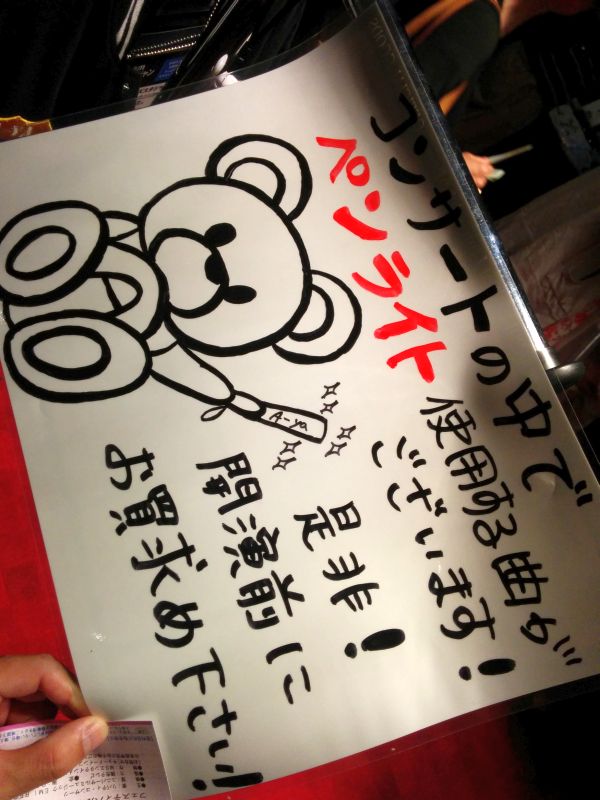 コンサートの中で
ペンライト使用する曲が
ございます!
是非!
開演前に
お買求め下さい!
A-ya